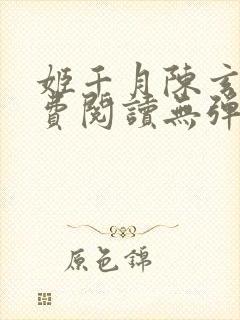 姬千月陳玄
費閱讀無彈
原色錦